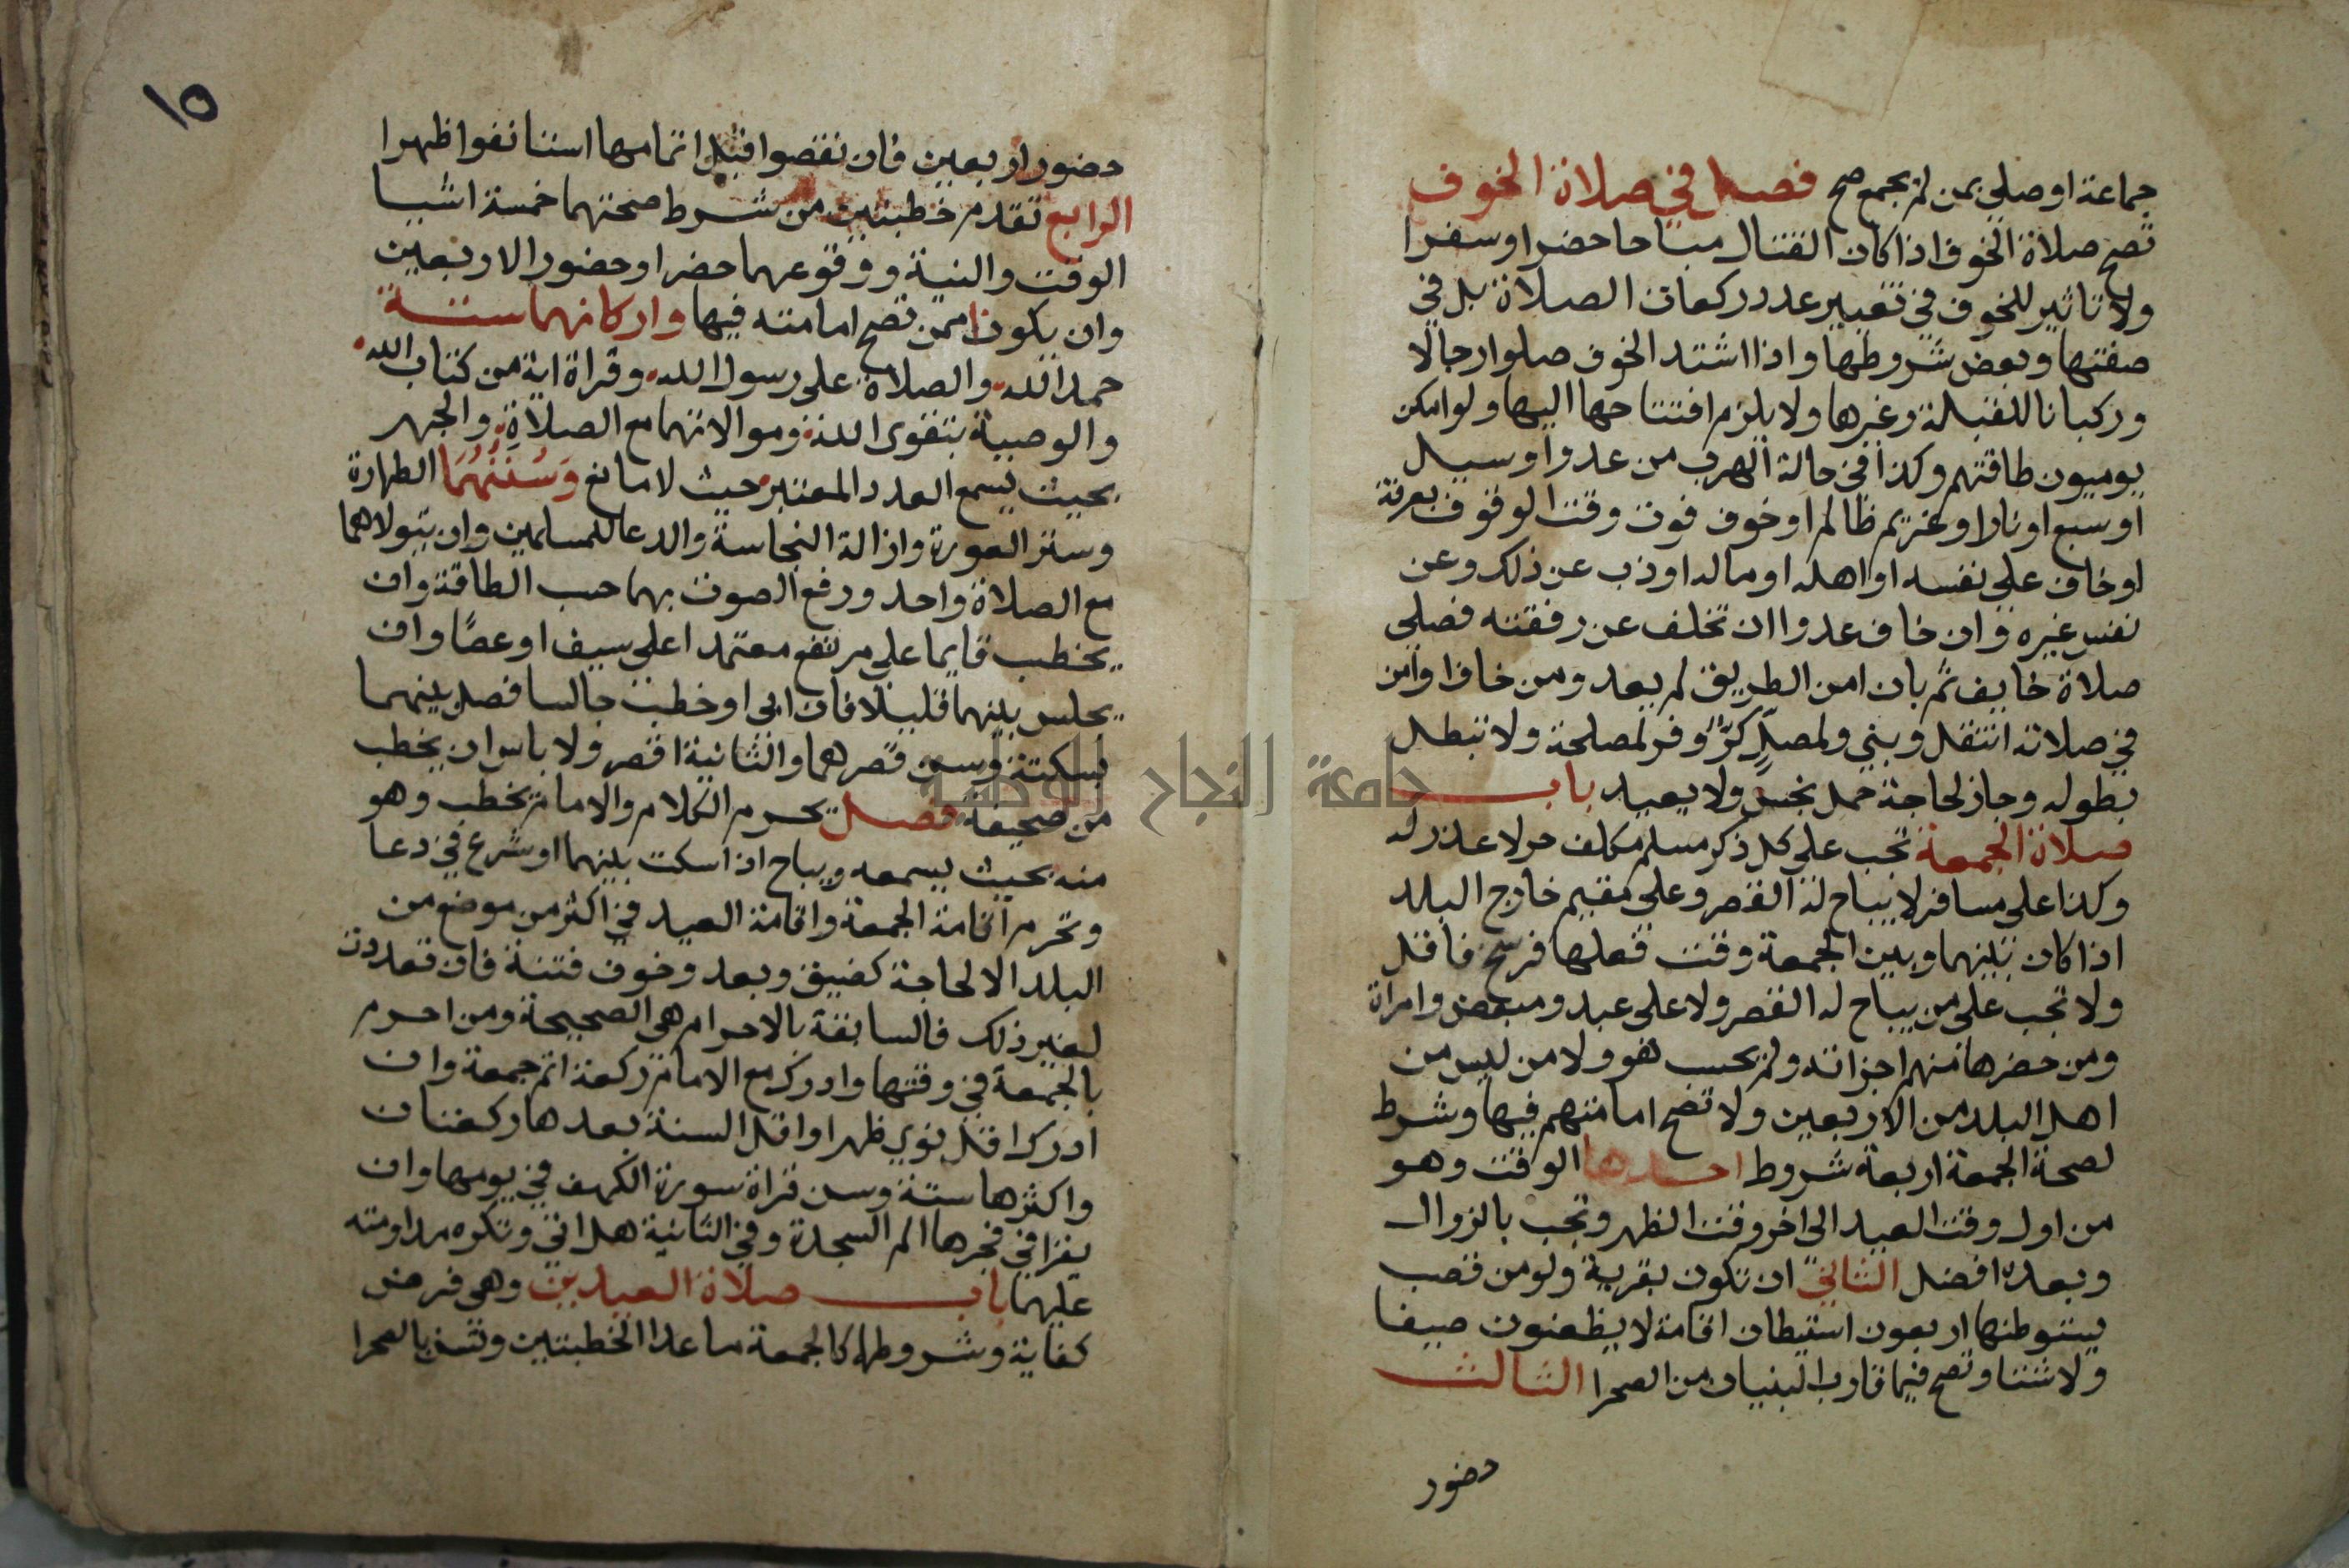 جماعة او صلي بمن لم يجمع صح فصل في صلاة الخوف
تصح صلاة الخوف اذا كان القتال مباحا حضرا وسفرا
ولا تاثير للخوف في تغيير عدد ركعات الصلاة بل في
صفتها وبعض شروطها واذا اشتد الخوف صلوا رجالا
وركبانا للقبلة وغيرها ولا يلزم افتتاحها اليها ولو امكن
يوميون طاقتهم وكذا في حالة الهرب من عدو او سيل
او سبع او نار او غريم ظالم او خوف فوت وقت الوقوف بعرفة
او خاف علي نفسه او اهله او ماله او ذب عن ذلك وعن
نفس غيره وان خاف عدوا ان تخلف عن رفقته فصلي
صلاة خايف ثم بان امن الطريق لم يعد ومن خاف او امن
في صلاته انتقل وبني ولمصلٍ كرٌّ وفر لمصلحة ولا تبطل
بطوله وجاز لحاجة حمل نجس ولا يعيد باب
صلاة الجمعة تجب علي كل ذكر مسلم مكلف حر لا عذر له
وكذا على مسافر لا يباح له القصر وعلي مقيم خارج البلد
اذا كان بينهما وبين الجمعة وقت فعلها فرسخ فاقل
ولا تجب على من يباح له القصر ولا على عبد ومبعض وامراة
ومن حضرها منهم اجزاته ولم يحسب هو ولا من ليس من
اهل البلد من الاربعين ولا تصح امامتهم فيها وشرط
لصحة الجمعة اربعة شروط احدها الوقت وهو
من اول وقت العيد الى اخر وقت الظهر وتجب بالزوال
وبعده افضل الثاني ان تكون بقرية ولو من قصب
يستوطنها اربعون استيطان اقامة لا يظعنون صيفا
ولا شتا وتصح فيما قارب البنيان من الصحرا الثالث
حضور
١٥
حضور اربعين فان نقصوا قبل اتمامها استانفوا ظهرا
الرابع تقدم خطبتين من شرط صحتهما خمسة اشيا
الوقت والنية ووقوعهما حضرا وحضور الاربعين
وان يكونا ممن تصح امامته فيها واركانهما ستة
حمد الله والصلاة على رسول الله وقراة اية من كتاب الله
والوصية بتقوى الله وموالاتهما مع الصلاة والجهر
بحيث يسمع العدد المعتبر حيث لا مانع وَسُنَنُهُمَا الطهارة
وستر العورة وازالة النجاسة والدعا للمسلمين وان يتولاهما
مع الصلاة واحد ورفع الصوت بهما حسب الطاقة وان
يخطب قايما علي مرتفع معتمدا علي سيف او عصًا وان
يجلس بينهما قليلا فان ابى او خطب جالسا فصل بينهما
بسكتة وسن قصرهما والثانية اقصر ولا باس ان يخطب
من صحيفة فصل يحرم الكلام والامام يخطب وهو
منه بحيث يسمعه ويباح اذا سكت بينهما او شرع في دعا
وتحرم اقامة الجمعة واقامة العيد في اكثر من موضع من
البلد الا لحاجة كضيق وبعد وخوف فتنة فان تعددت
لغير ذلك فالسابقة بالاحرام هى الصحيحة ومن احرم
بالجمعة في وقتها وادرك مع الامام ركعة اتم جمعة وان
ادرك اقل نوي ظهرا واقل السنة بعدها ركعتان
واكثرها ستة وسن قراة سورة الكهف في يومها وان
يقرا في فجرها الم السجدة وفي الثانية هل اتي وتكره مداومته
عليهما باب صلاة العيدين وهى فرض
كفاية وشروطها كالجمعة ما عدا الخطبتين وتسن بالصحرا
جامعة النجاح الوطنية